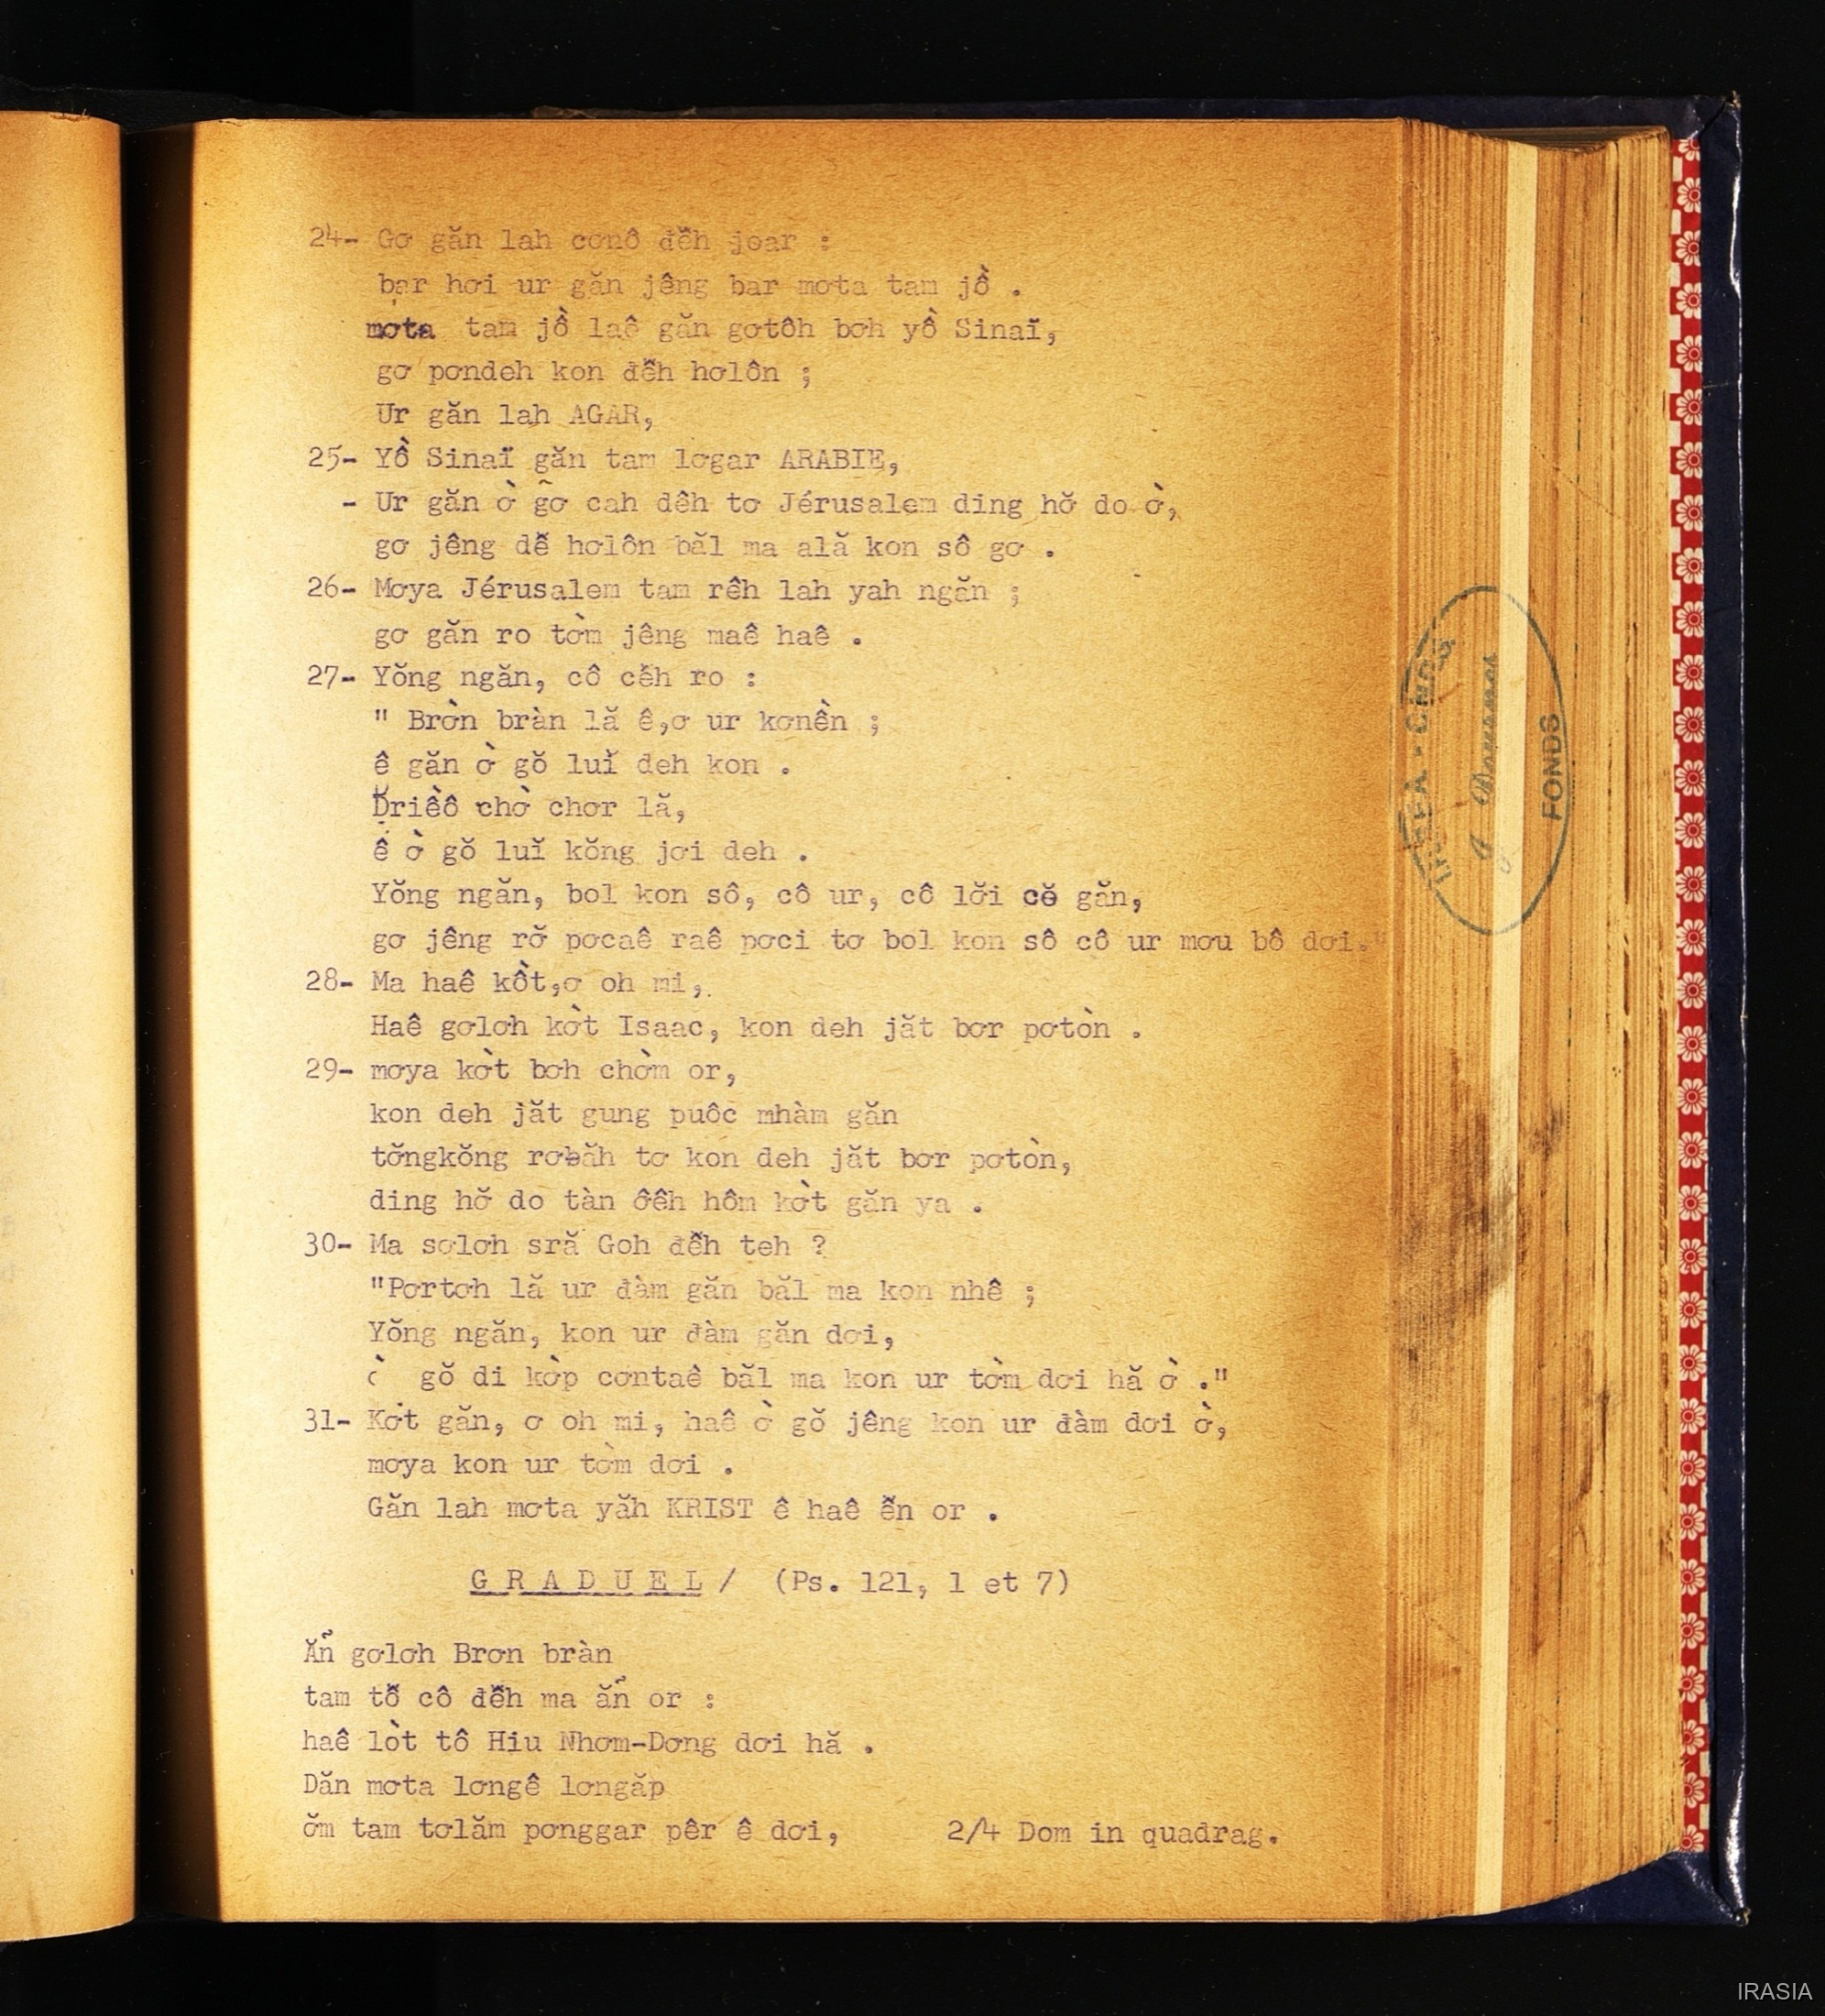 24- Gơ găn lah cơnô đễh jơar :
bạr hơi ur găn jêng bar mơta tam jồ .
mơta tam jồ laê găn gơtôh bơh yồ Sinaï,
gơ pơndeh kon đễh hơlôn ;
Ur găn lah AGAR,
25- Yồ Sinaï găn tam lơgar ARABIE,
- Ur găn ờ gỡ cah dêh tơ Jérusalem ding hơ̆ do ờ,
gơ jêng dễ hơlôn băl ma ală kon sô gơ .
26- Mơya Jérusalem tam rêh lah yah ngăn ;
gơ găn ro tờm jêng maê haê .
27- Yŏng ngăn, cô cễh ro :
" Brờn bràn lă ê,ơ ur kơnền ;
ê găn ờ gŏ luĭ deh kon .
Driềô chờ chơr lă,
ê ờ gŏ luĭ kŏng jơi deh .
Yŏng ngăn, bol kon sô, cô ur, cô lơ̆i cĕ găn,
gơ jêng rơ̆ pơcaê raê pơci tơ bol kon sô cô ur mơu bô dơi."
28- Ma haê kồt,ơ oh mi,
Haê gơlơh kờt Isaac, kon deh jăt bơr pơtòn .
29- mơya kờt bơh chờm or,
kon deh jăt gung puôc mhàm găn
tơ̆ngkŏng rơbăh tơ kon deh jăt bơr pơtòn,
ding hơ̆ do tàn ôêh hôm kờt găn ya .
30- Ma sơlơh sră Goh đễh teh ?
"Pơrtơh lă ur đàm găn băl ma kon nhê ;
Yŏng ngăn, kon ur đàm găn dơi,
ờ gŏ di kờp cơntaê băl ma kon ur tờm dơi hă ờ ."
31- Kơt găn, ơ oh mi, haê ờ gŏ jêng kon ur đàm dơi ờ,
mơya kon ur tờm dơi .
Găn lah mơta yăh KRIST ê haê ễn or .
G R A D U E L / (Ps. 121, 1 et 7)
Ăn̉ gơlơh Brơn bràn
tam tỗ cô đễh ma ăn̉ or :
haê lòt tô Hiu Nhơm-Dơng dơi hă .
Dăn mơta lơngê lơngăp
ơ̆m tam tơlăm pơnggar pêr ê dơi,
2/4 Dom in quadrag.
FONDS
IRASIA